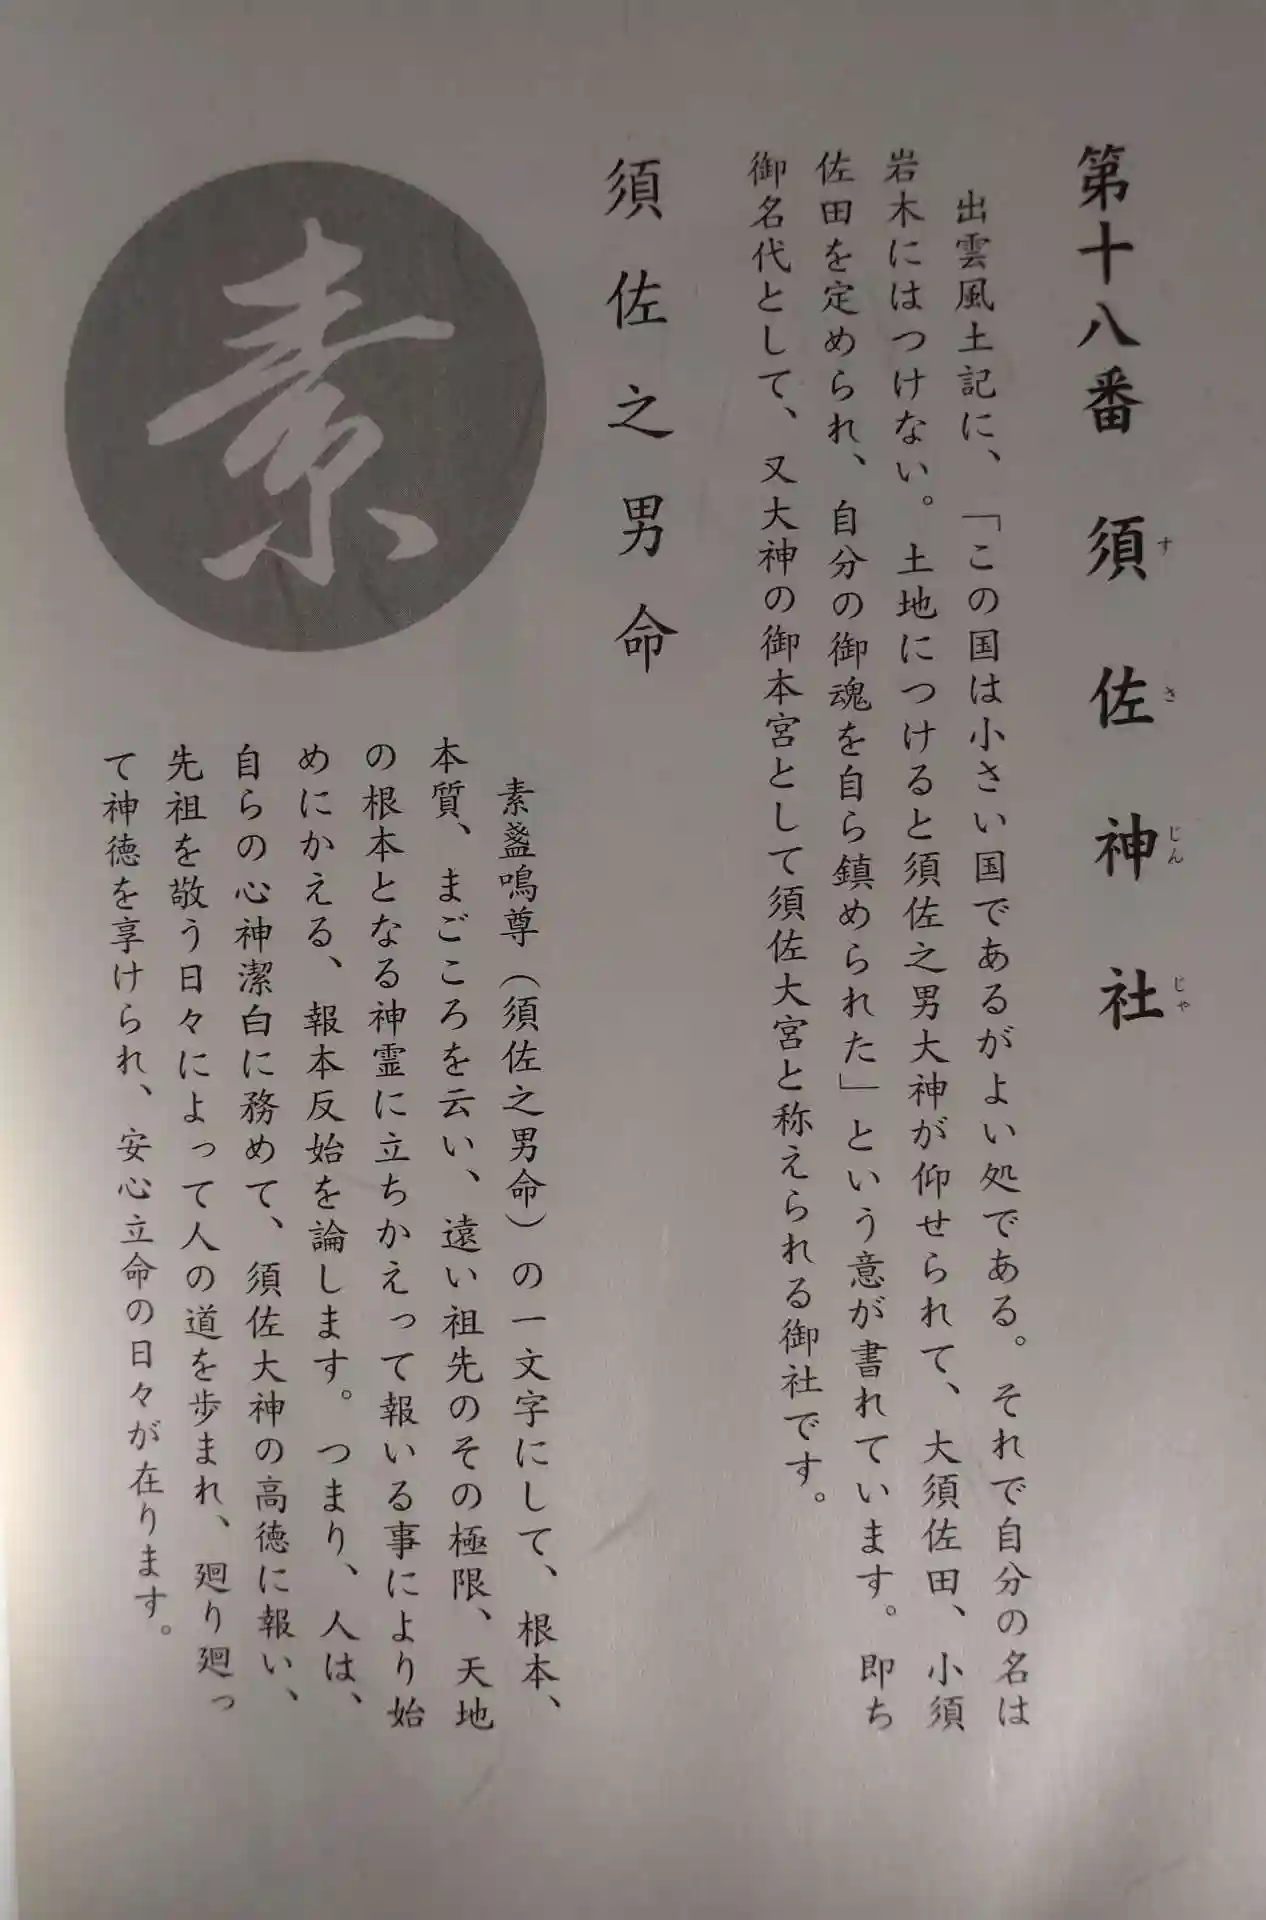 第十八番 須佐神社
すさじんじゃ
出雲風土記に、「この国は小さい国であるがよい処である。それで自分の名は
岩木にはつけない。土地につけると須佐之男大神が仰せられて、大須佐田、小須
佐田を定められ、自分の御魂を自ら鎮められた」という意が書れています。即ち
御名代として、又大神の御本宮として須佐大宮と称えられる御社です。
須佐之男命
素
素盞嗚尊（須佐之男命）の一文字にして、根本、
本質、まごころを云い、遠い祖先のその極限、天地
の根本となる神霊に立ちかえって報いる事により始
めにかえる、報本反始を論します。つまり、人は、
自らの心神潔白に務めて、須佐大神の高徳に報い、
先祖を敬う日々によって人の道を歩まれ、廻り廻っ
て神徳を享けられ、安心立命の日々が在ります。